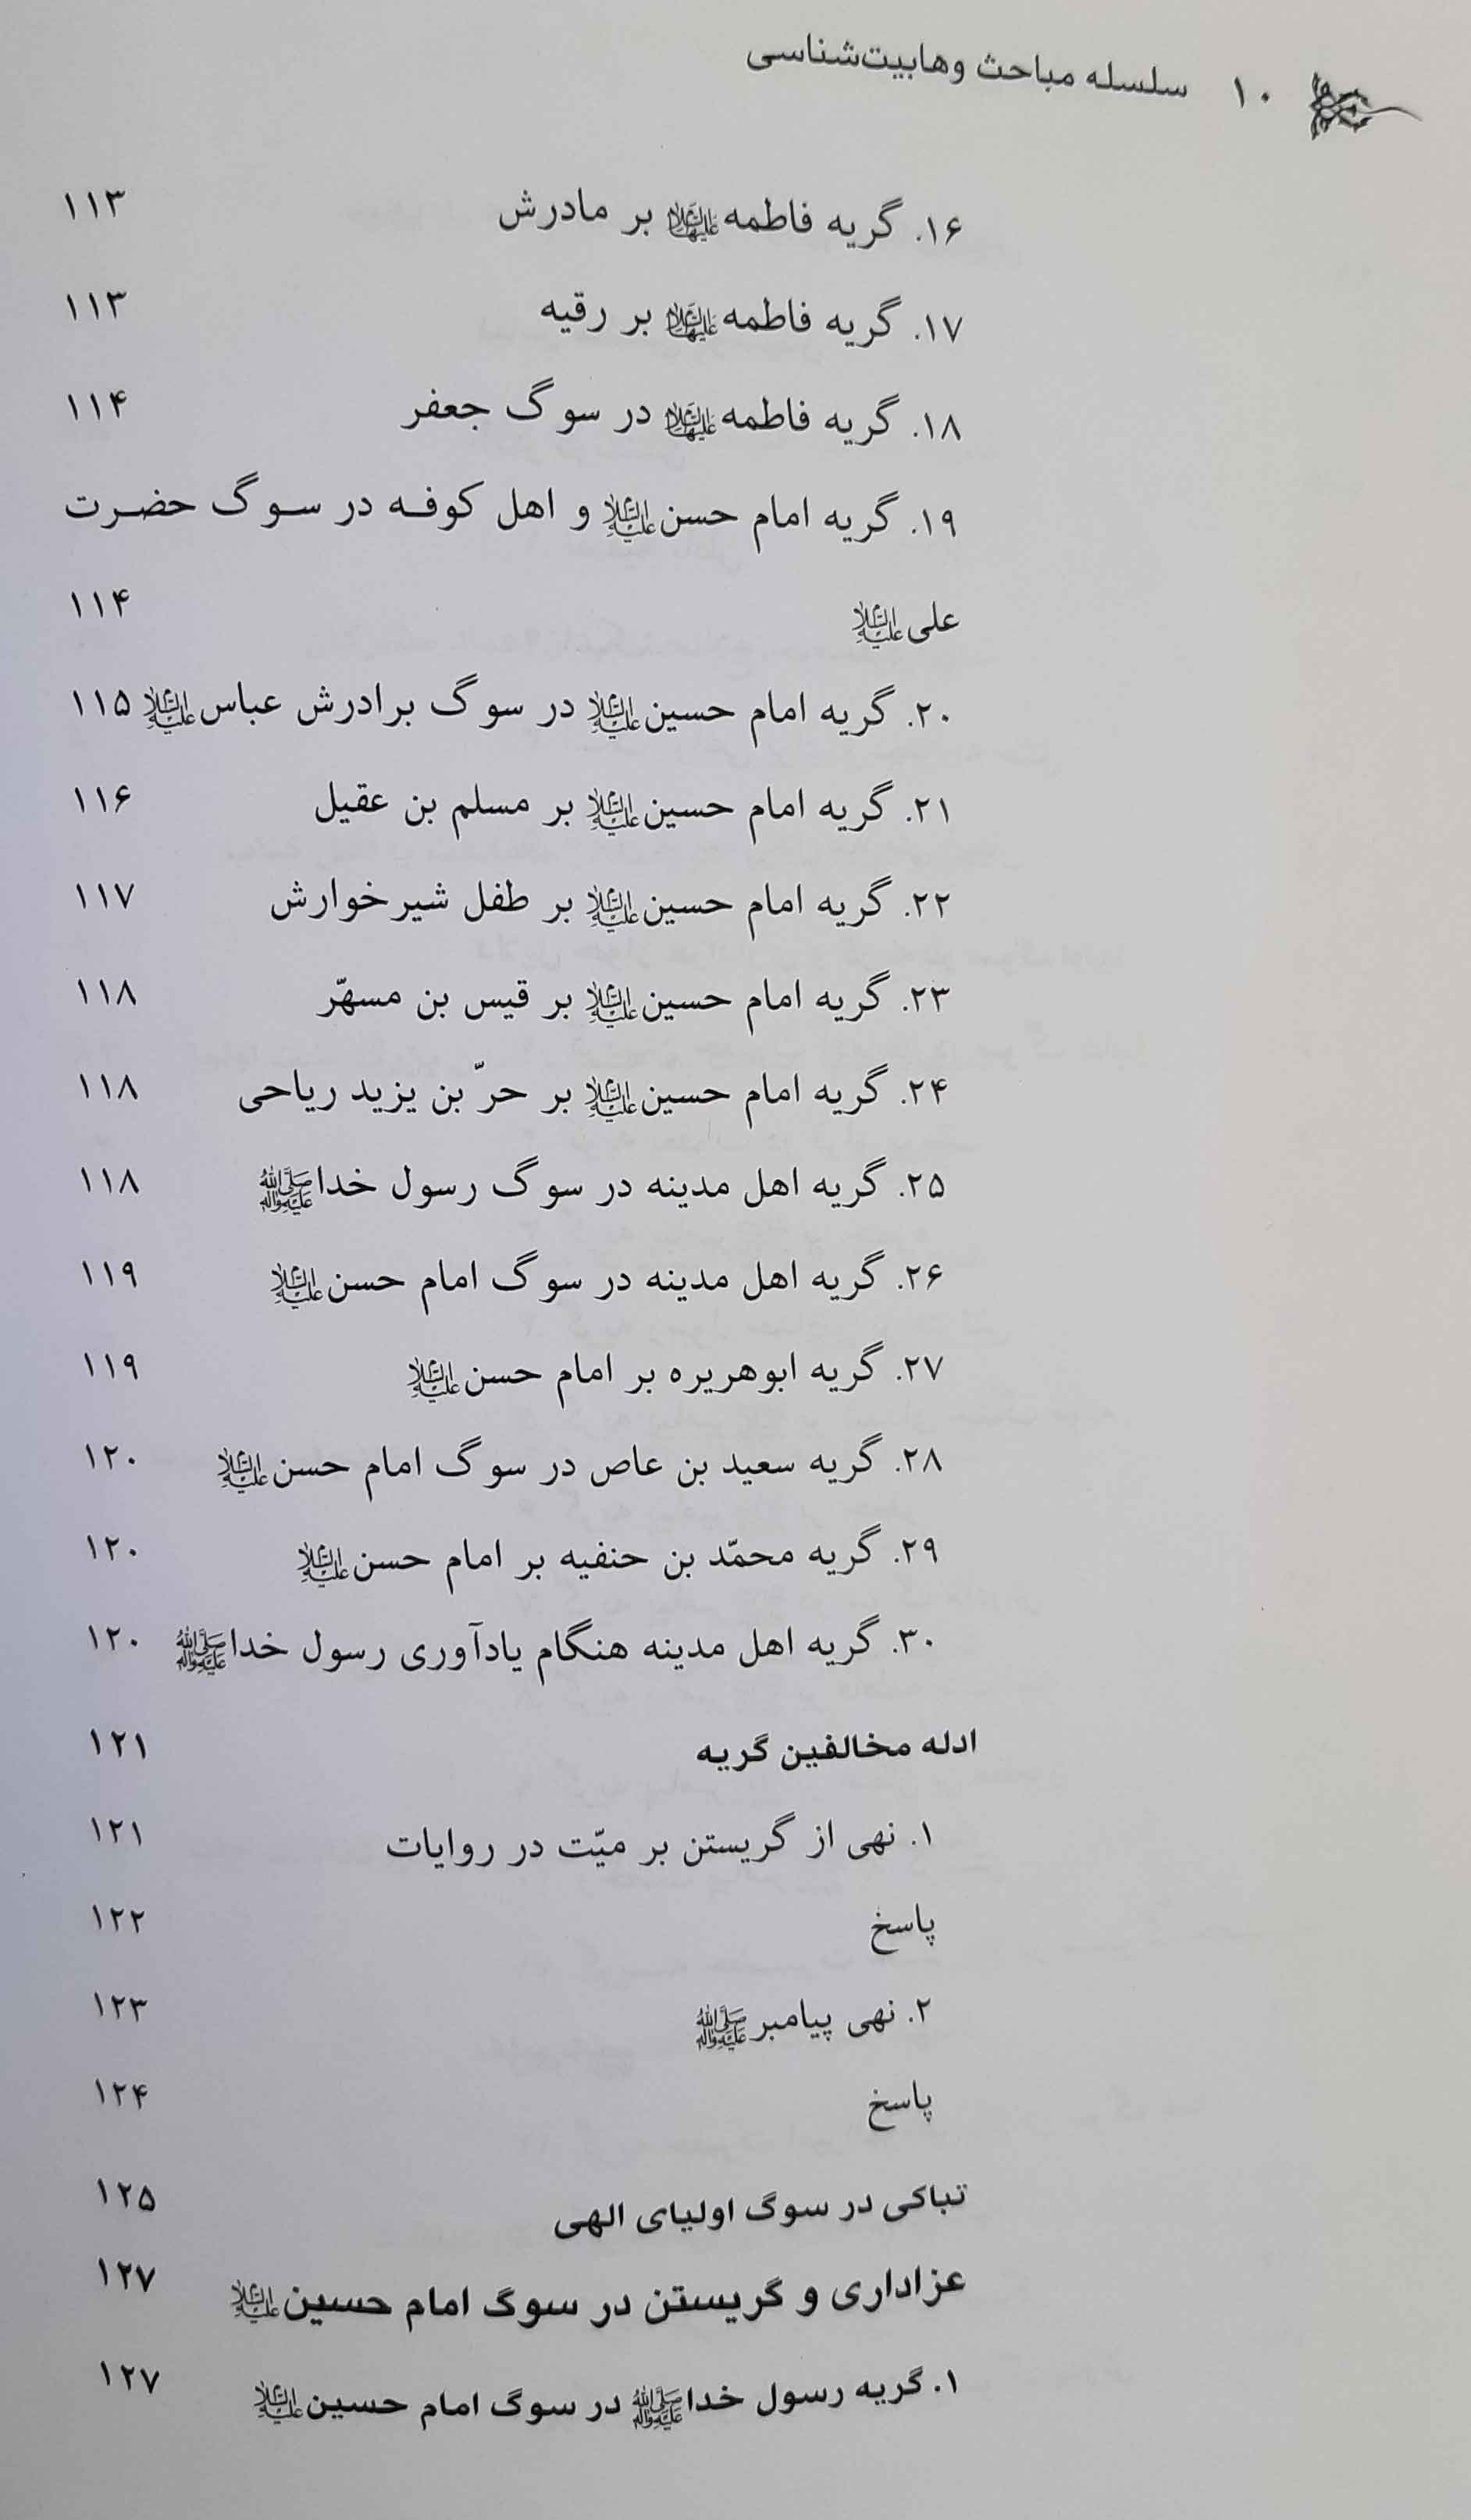 ۱۰ سلسله مباحث وهابیت‌شناسی
۱۶. گریه فاطمه علیها السلام بر مادرش ۱۱۳
۱۷. گریه فاطمه علیها السلام بر رقیه ۱۱۳
۱۸. گریه فاطمه علیها السلام در سوگ جعفر ۱۱۴
۱۹. گریه امام حسن علیه السلام و اهل کوفه در سوگ حضرت
علی علیه السلام ۱۱۴
۲۰. گریه امام حسین علیه السلام در سوگ برادرش عباس علیه السلام ۱۱۵
۲۱. گریه امام حسین علیه السلام بر مسلم بن عقیل ۱۱۶
۲۲. گریه امام حسین علیه السلام بر طفل شیرخوارش ۱۱۷
۲۳. گریه امام حسین علیه السلام بر قیس بن مسهّر ۱۱۸
۲۴. گریه امام حسین علیه السلام بر حرّ بن یزید ریاحی ۱۱۸
۲۵. گریه اهل مدینه در سوگ رسول خدا صلی الله علیه وآله ۱۱۸
۲۶. گریه اهل مدینه در سوگ امام حسن علیه السلام ۱۱۹
۲۷. گریه ابوهریره بر امام حسن علیه السلام ۱۱۹
۲۸. گریه سعید بن عاص در سوگ امام حسن علیه السلام ۱۲۰
۲۹. گریه محمّد بن حنفیه بر امام حسن علیه السلام ۱۲۰
۳۰. گریه اهل مدینه هنگام یادآوری رسول خدا صلی الله علیه وآله ۱۲۰
ادله مخالفین گریه ۱۲۱
۱. نهی از گریستن بر میّت در روایات ۱۲۱
پاسخ ۱۲۲
۲. نهی پیامبر صلی الله علیه وآله ۱۲۳
پاسخ ۱۲۴
تباکی در سوگ اولیای الهی ۱۲۵
عزاداری و گریستن در سوگ امام حسین علیه السلام ۱۲۷
۱. گریه رسول خدا صلی الله علیه وآله در سوگ امام حسین علیه السلام ۱۲۷